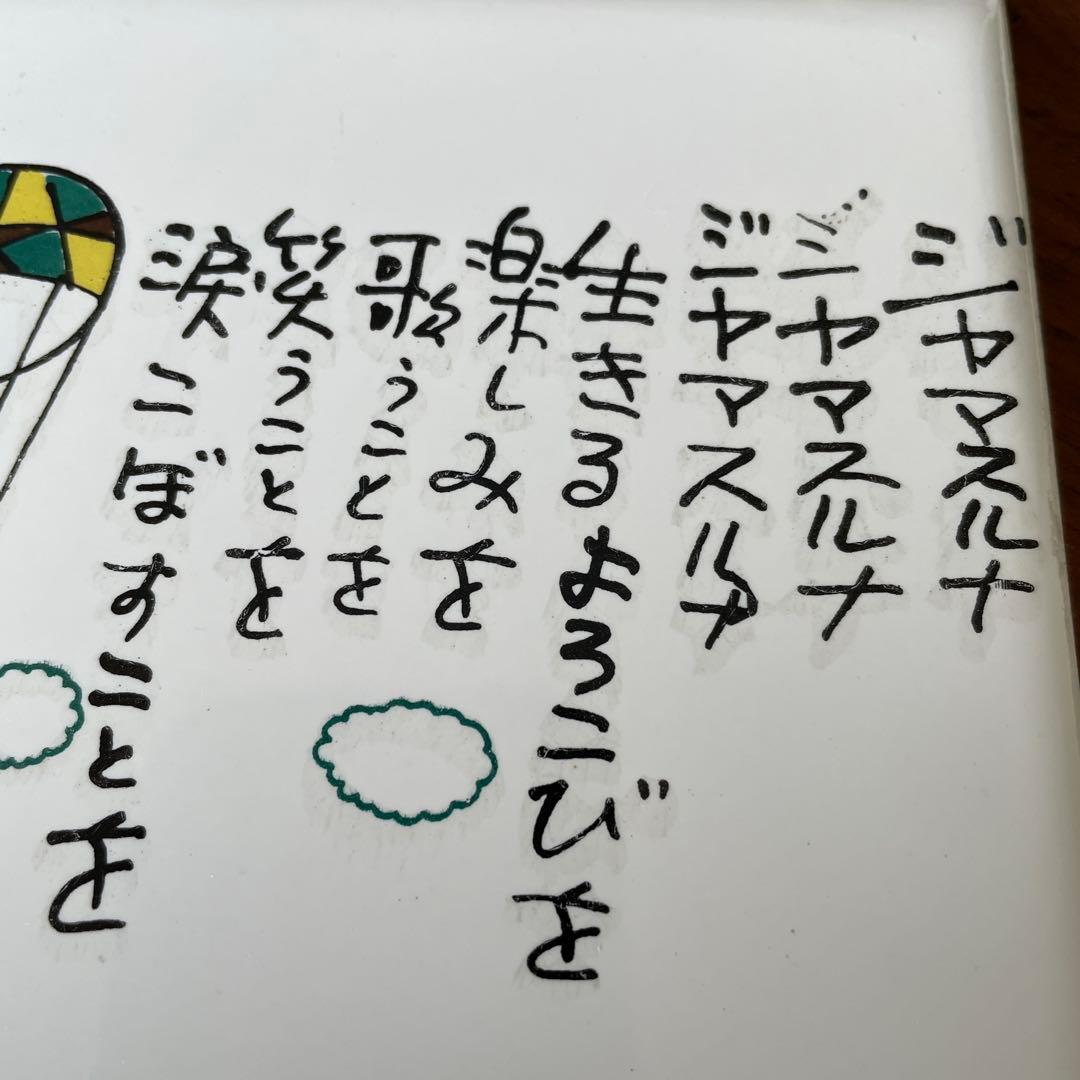 ジャマスルナ
ジャマスルナ
ジャマスルナ
生きるよろこびを
楽しみを
歌うことを
笑うことを
涙こぼすことを